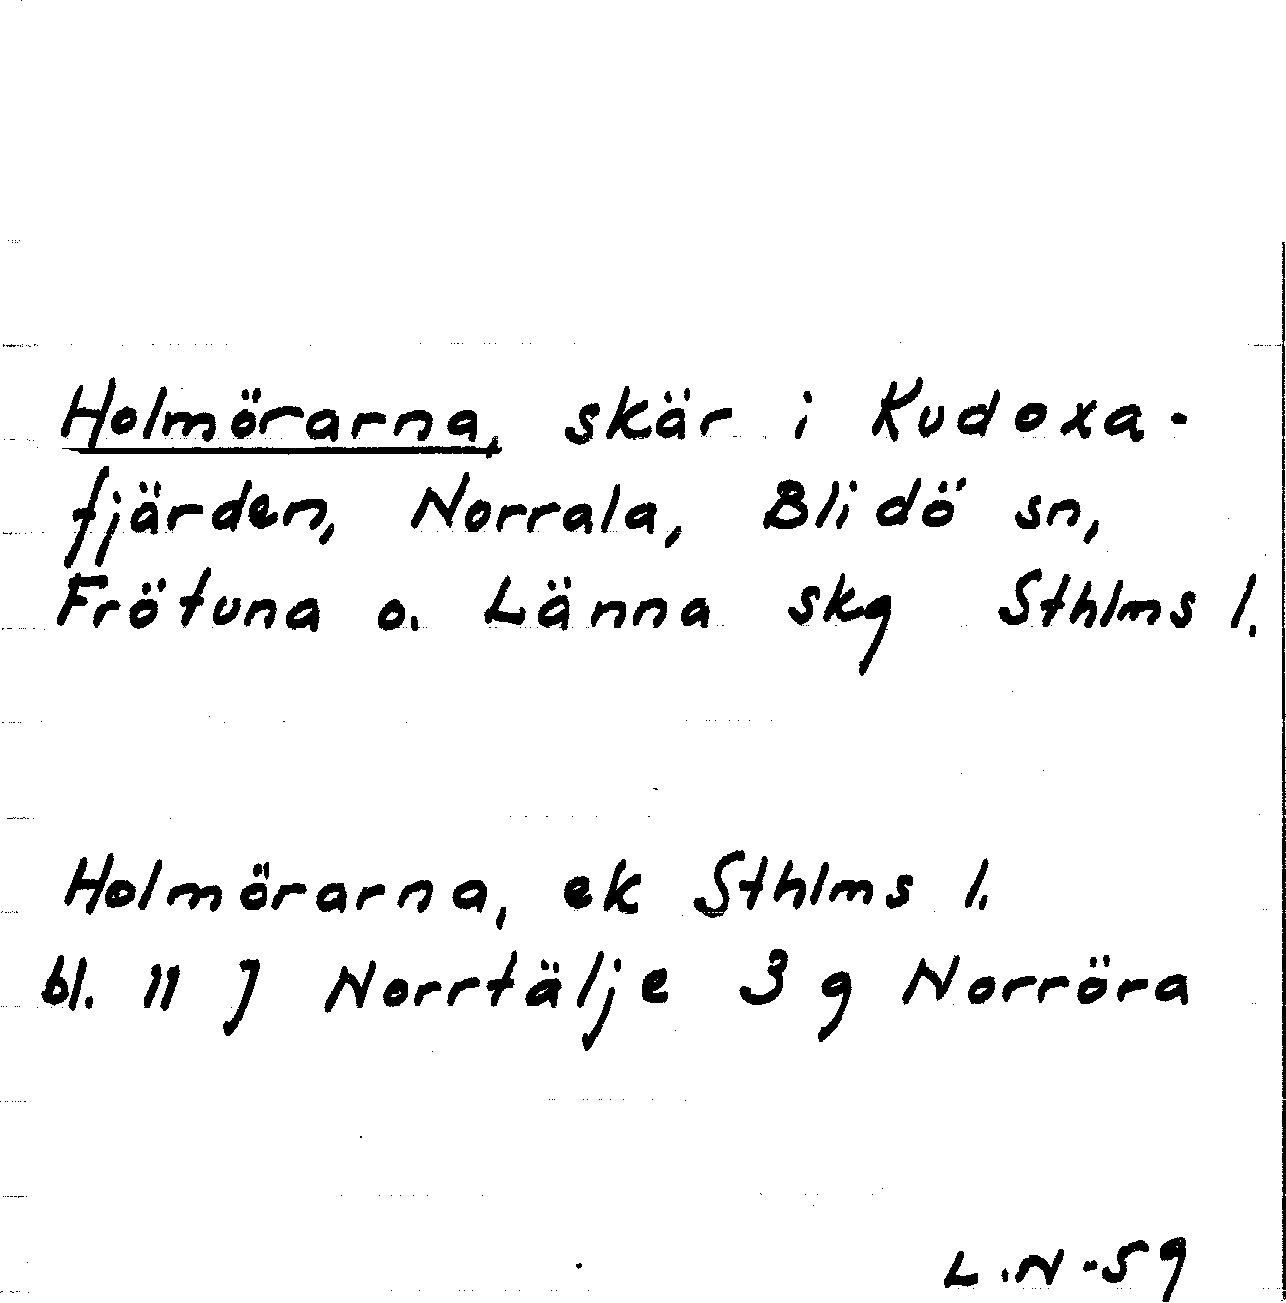 Holmörarna, skär i Kudoxa-
fjärden, Norrala, Blidö sn,
Frötuna o. Länna skg Sthlms l.
Holmörarna, ek Sthlms l.
bl. 11 J Norrtälje 3 g Norröra
L.N-59